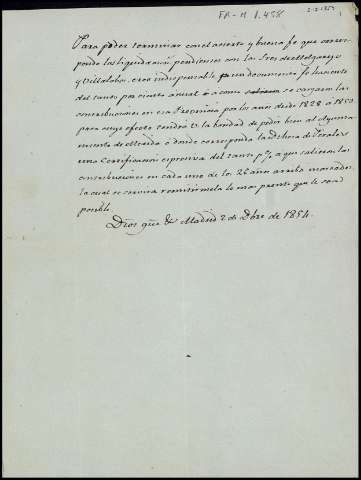 FR-M 1.458
2-2-1854
Para poder terminar con el acierto y buena fe que corres-
ponde las liquidaciones pendientes con los Sres de Melgarejo
y Villalobos, creo indispensable un documento fehaciente
del tanto por ciento anual ó a como se cargaron las
contribuciones en esa Provincia por los años desde 1828 á 1853
para cuyo efecto tendrá V. la bondad de pedir bien al Ayunta-
miento de Mérida ó donde corresponda la Dehesa de Perales
una Certificacion espresiva del tanto p% a que salieron las
contribuciones en cada uno de los 26 años arriba marcados,
la cual se servirá remitirmela lo mas pronto que le sea
posible.
Dios gue &c Madrid 2 de Dbre de 1854.